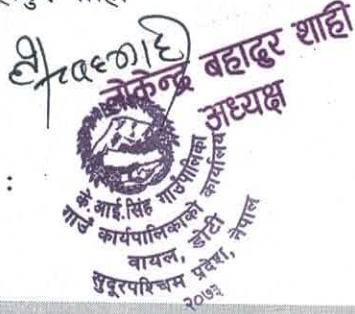 लोकेन्द्र बहादुर शाही
अध्यक्ष
:
के.आई.सिंह गाउँपालिका
गाउँ कार्यपालिकाको कार्यालय
वायल, डोटी
सुदूरपश्चिम प्रदेश, नेपाल
२०७३